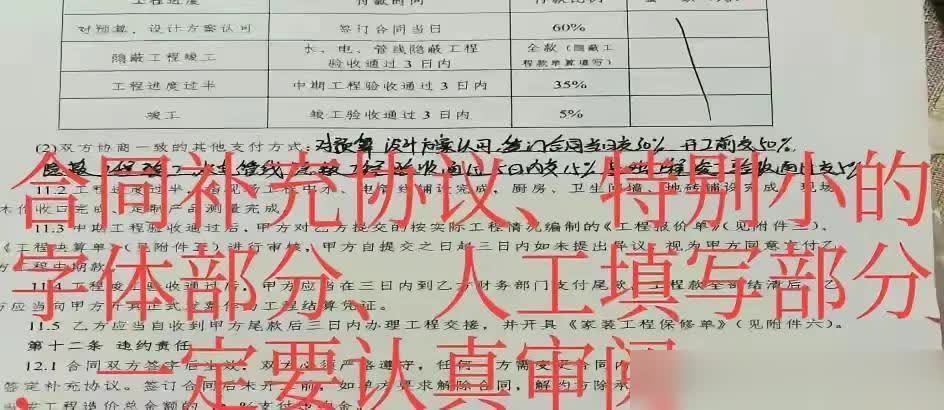 工程进度 付款时间 付款比例
对预算、设计方案认可 签订合同当日 60%
隐蔽工程竣工 水、电、管线隐蔽工程验收通过 3 日内 全款（隐蔽工程款单算填写）
工程进度过半 中期工程验收通过 3 日内 35%
竣工 竣工验收通过 3 日内 5%
(2)双方协商一致的其他支付方式：对预算 设计方案认可,签订合同当日支50% 开工前支50%
合同补充协议、特别小的
11.2 工程进度过半，指现场工程中水、电管线铺设完成，厨房、卫生间墙、地砖铺设完成，现场
木作收口完成、定制产品测量完成。
11.3 中期工程验收通过后，甲方对乙方提交的按实际工程情况编制的《工程报价单》（见附件三）、
《工程决算单》（见附件五）进行审核，甲方自提交之日起三日内如未提出异议，视为甲方同意支付乙
方工程中期款。
字体部分、人工填写部分
11.4 工程竣工验收通过后，甲方应当在三日内到乙方财务部门支付尾款，工程款全部结清后，乙
方应当向甲方开具正式 工程结算凭证。
11.5 乙方应当自收到甲方尾款后三日内办理工程交接，并开具《家装工程保修单》（见附件六）。
第十二条 违约责任
，一定要认真审阅
12.1 合同双方签字后生效，双方必须严格遵守，任何一方需变更合同内
签定补充协议。签订合同后未开工前，如单方要求解除合同，解约方除承
工程造价总金额的 %支付